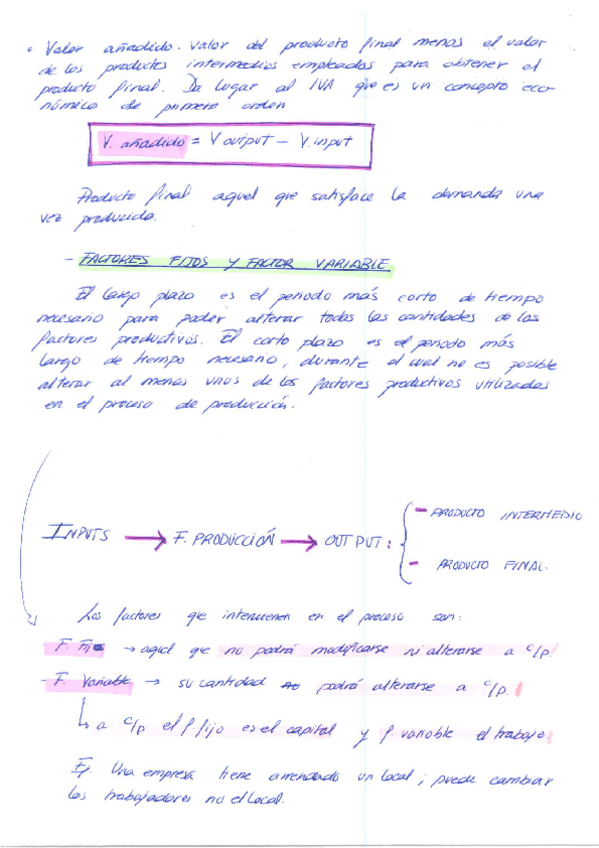 • Valor añadido. Valor del producto final menos el valor
de los productos intermedios empleados para obtener el
producto final. Da lugar al IVA que es un concepto eco-
nómico de primero orden
V. añadido = V output - V. input
Producto final aquel que satisface la demanda una
vez producido.
- FACTORES FIJOS Y FACTOR VARIABLE
El largo plazo es el periodo más corto de tiempo
necesario para poder alterar todas las cantidades de los
factores productivos. El corto plazo es el periodo más
largo de tiempo necesario, durante el cual no es posible
alterar al menos unos de los factores productivos utilizados
en el proceso de producción.
INPUTS → F. PRODUCCIÓN → OUTPUT: { - PRODUCTO INTERMEDIO
- PRODUCTO FINAL.
Los factores que intervienen en el proceso son:
- F. Fijo → aquel que no podrá modificarse ni alterarse a c/p.
- F. Variable → su cantidad podrá alterarse a c/p.
↳ a c/p el f fijo es el capital y f. variable el trabajo.
Ej. Una empresa tiene arrendado un local; puede cambiar
los trabajadores no el local.